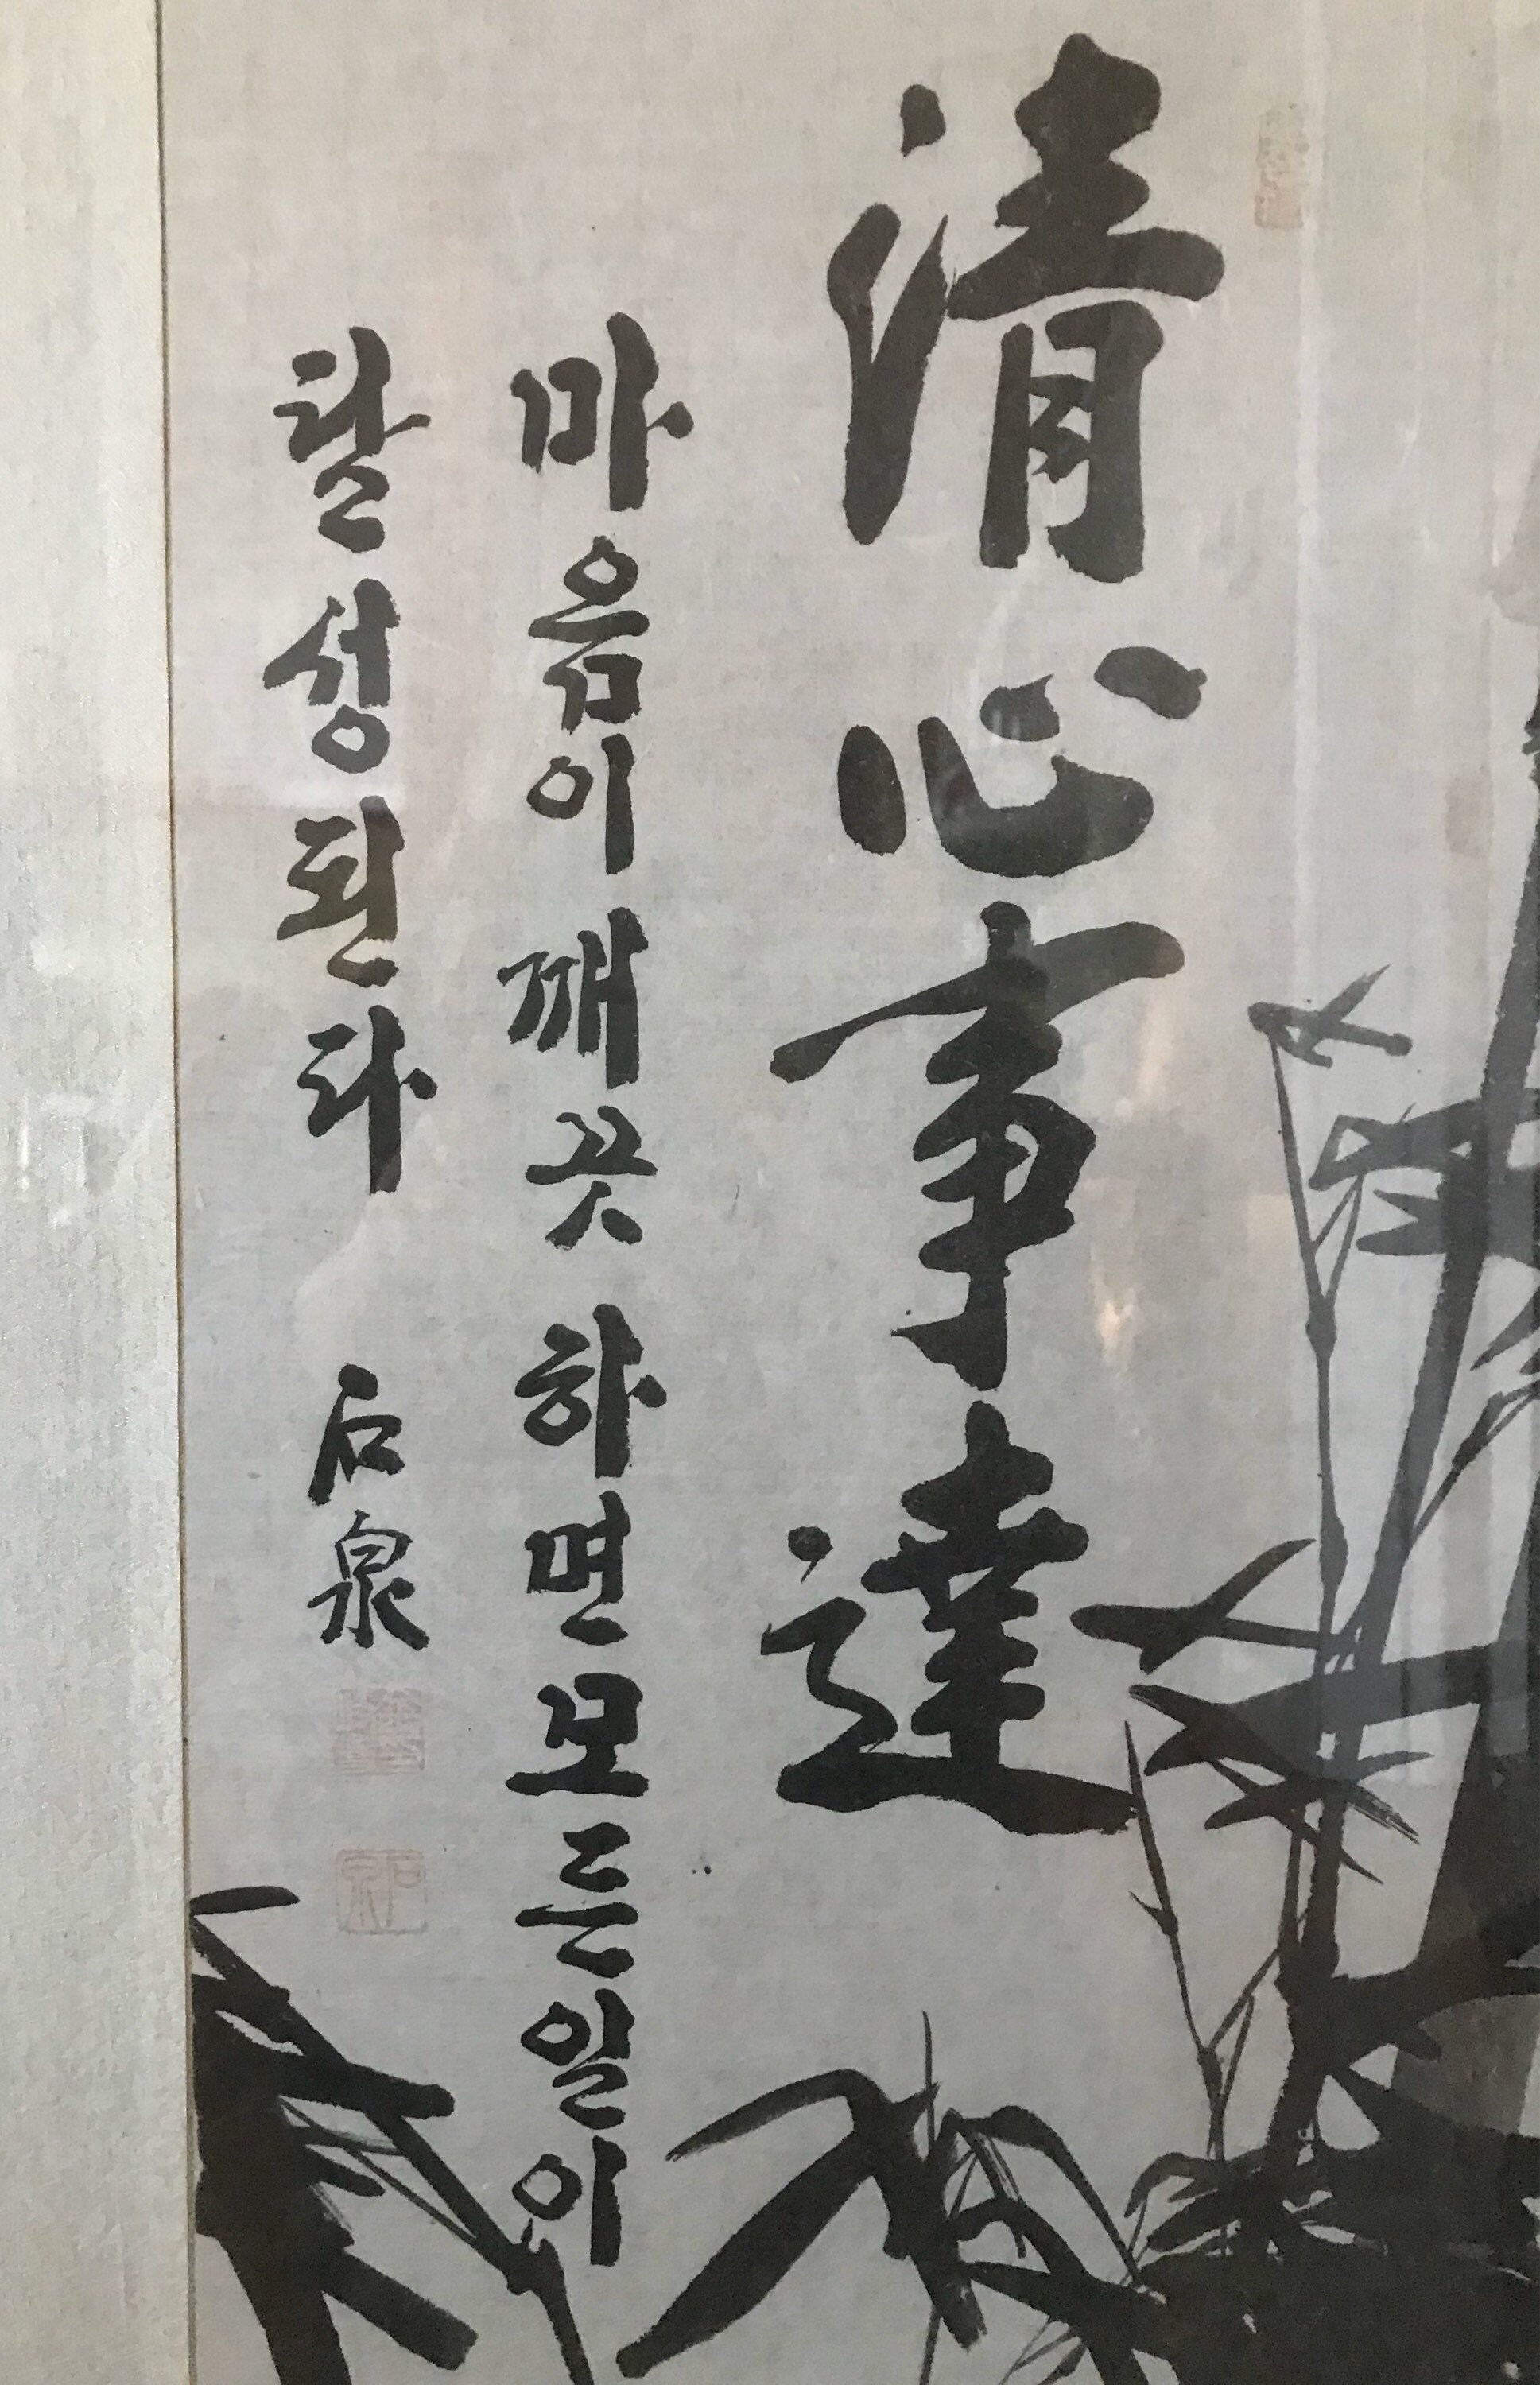 清心事達
마음이 깨끗하면 모든 일이
달성된다 石泉